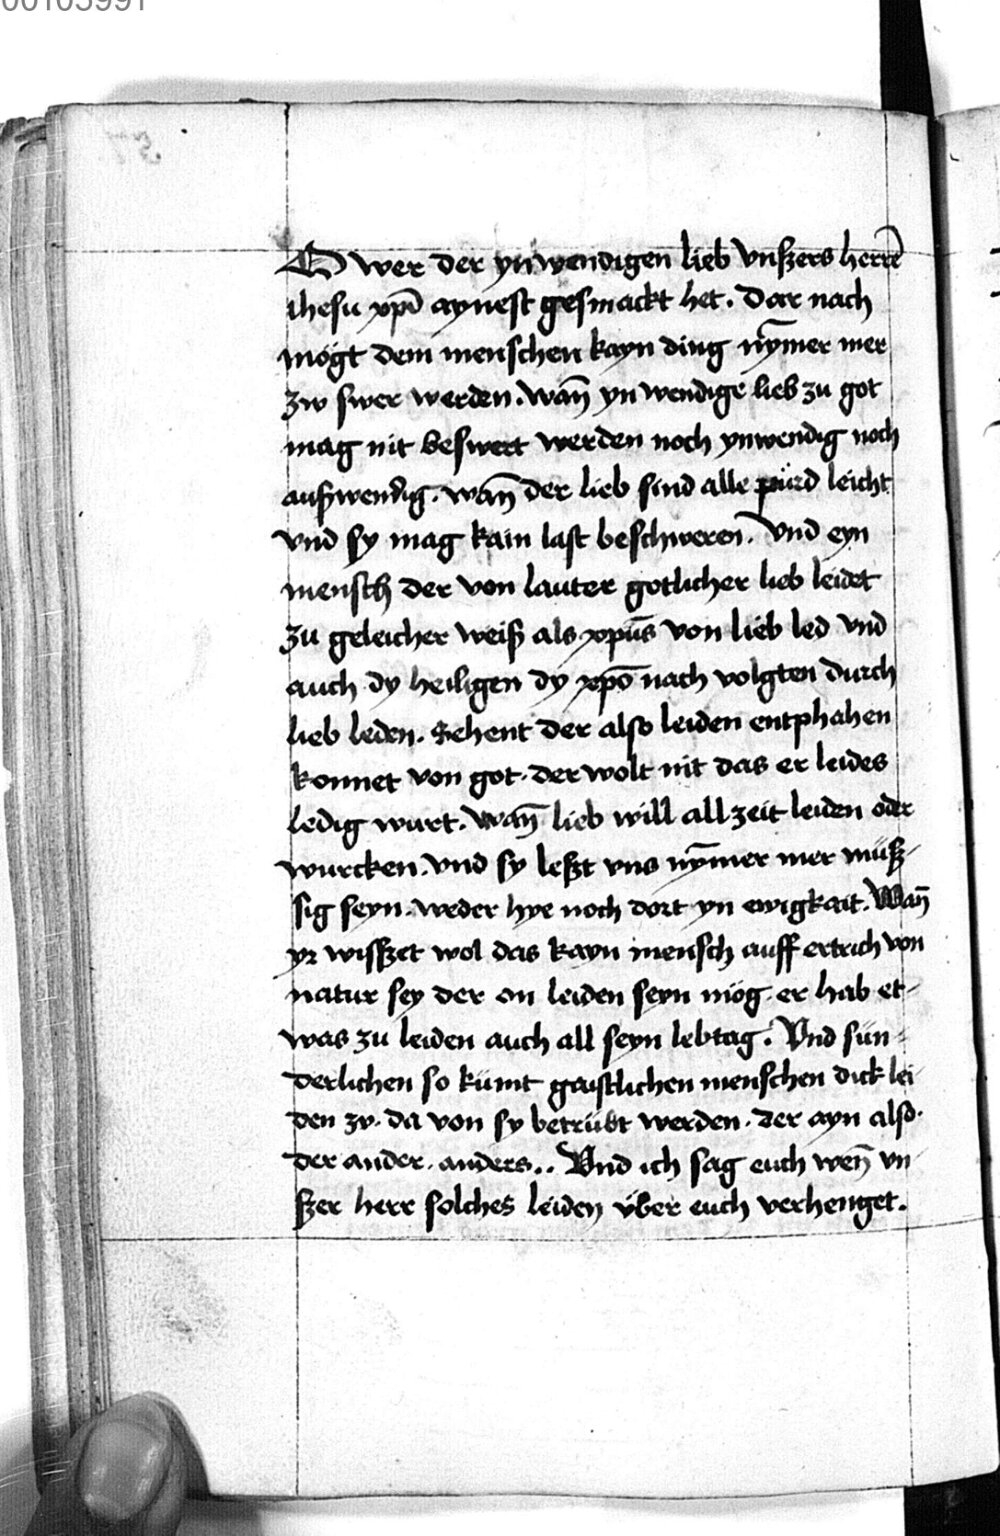 00103991
O wer der ynwendigen lieb vnßers herrē
ihesu xp̄i aynest gesmackt het. Dar nach
mögt dem menschen kayn ding nȳmer mer
zw swer werden. wan̄ yn wendige lieb zu got
mag nit beswert werden noch ynwendig noch
außwendig. wan̄ der lieb sind alle pürd leicht
vnd sy mag kain last beschweren. Vnd eyn
mensch der von lauter gotlicher lieb leidet
zu geleicher weiß als xp̄us von lieb led vnd
auch dy heiligen dy xp̄o nach volgten durch
lieb leden. Sehent der also leiden entphahen
konnet von got. der wolt nit das er leides
ledig wurt. wan̄ lieb will all zeit leiden oder
wurcken. vnd sy leßt vns nȳmer mer müß-
sig seyn. weder hye noch dort yn ewigkait. Wan̄
yr wisßet wol das kayn mensch auff ertrich von
natur sey der on leiden seyn mög. er hab et-
was zu leiden auch all seyn lebtag. Vnd sün-
derlichen so kümt gaistlichen menschen dick lei-
den zv. da von sy betrübt werden. der ayn also.
der ander. anders.. Vnd ich sag euch wen̄ vn-
ßer herr solches leiden über euch verhenget.